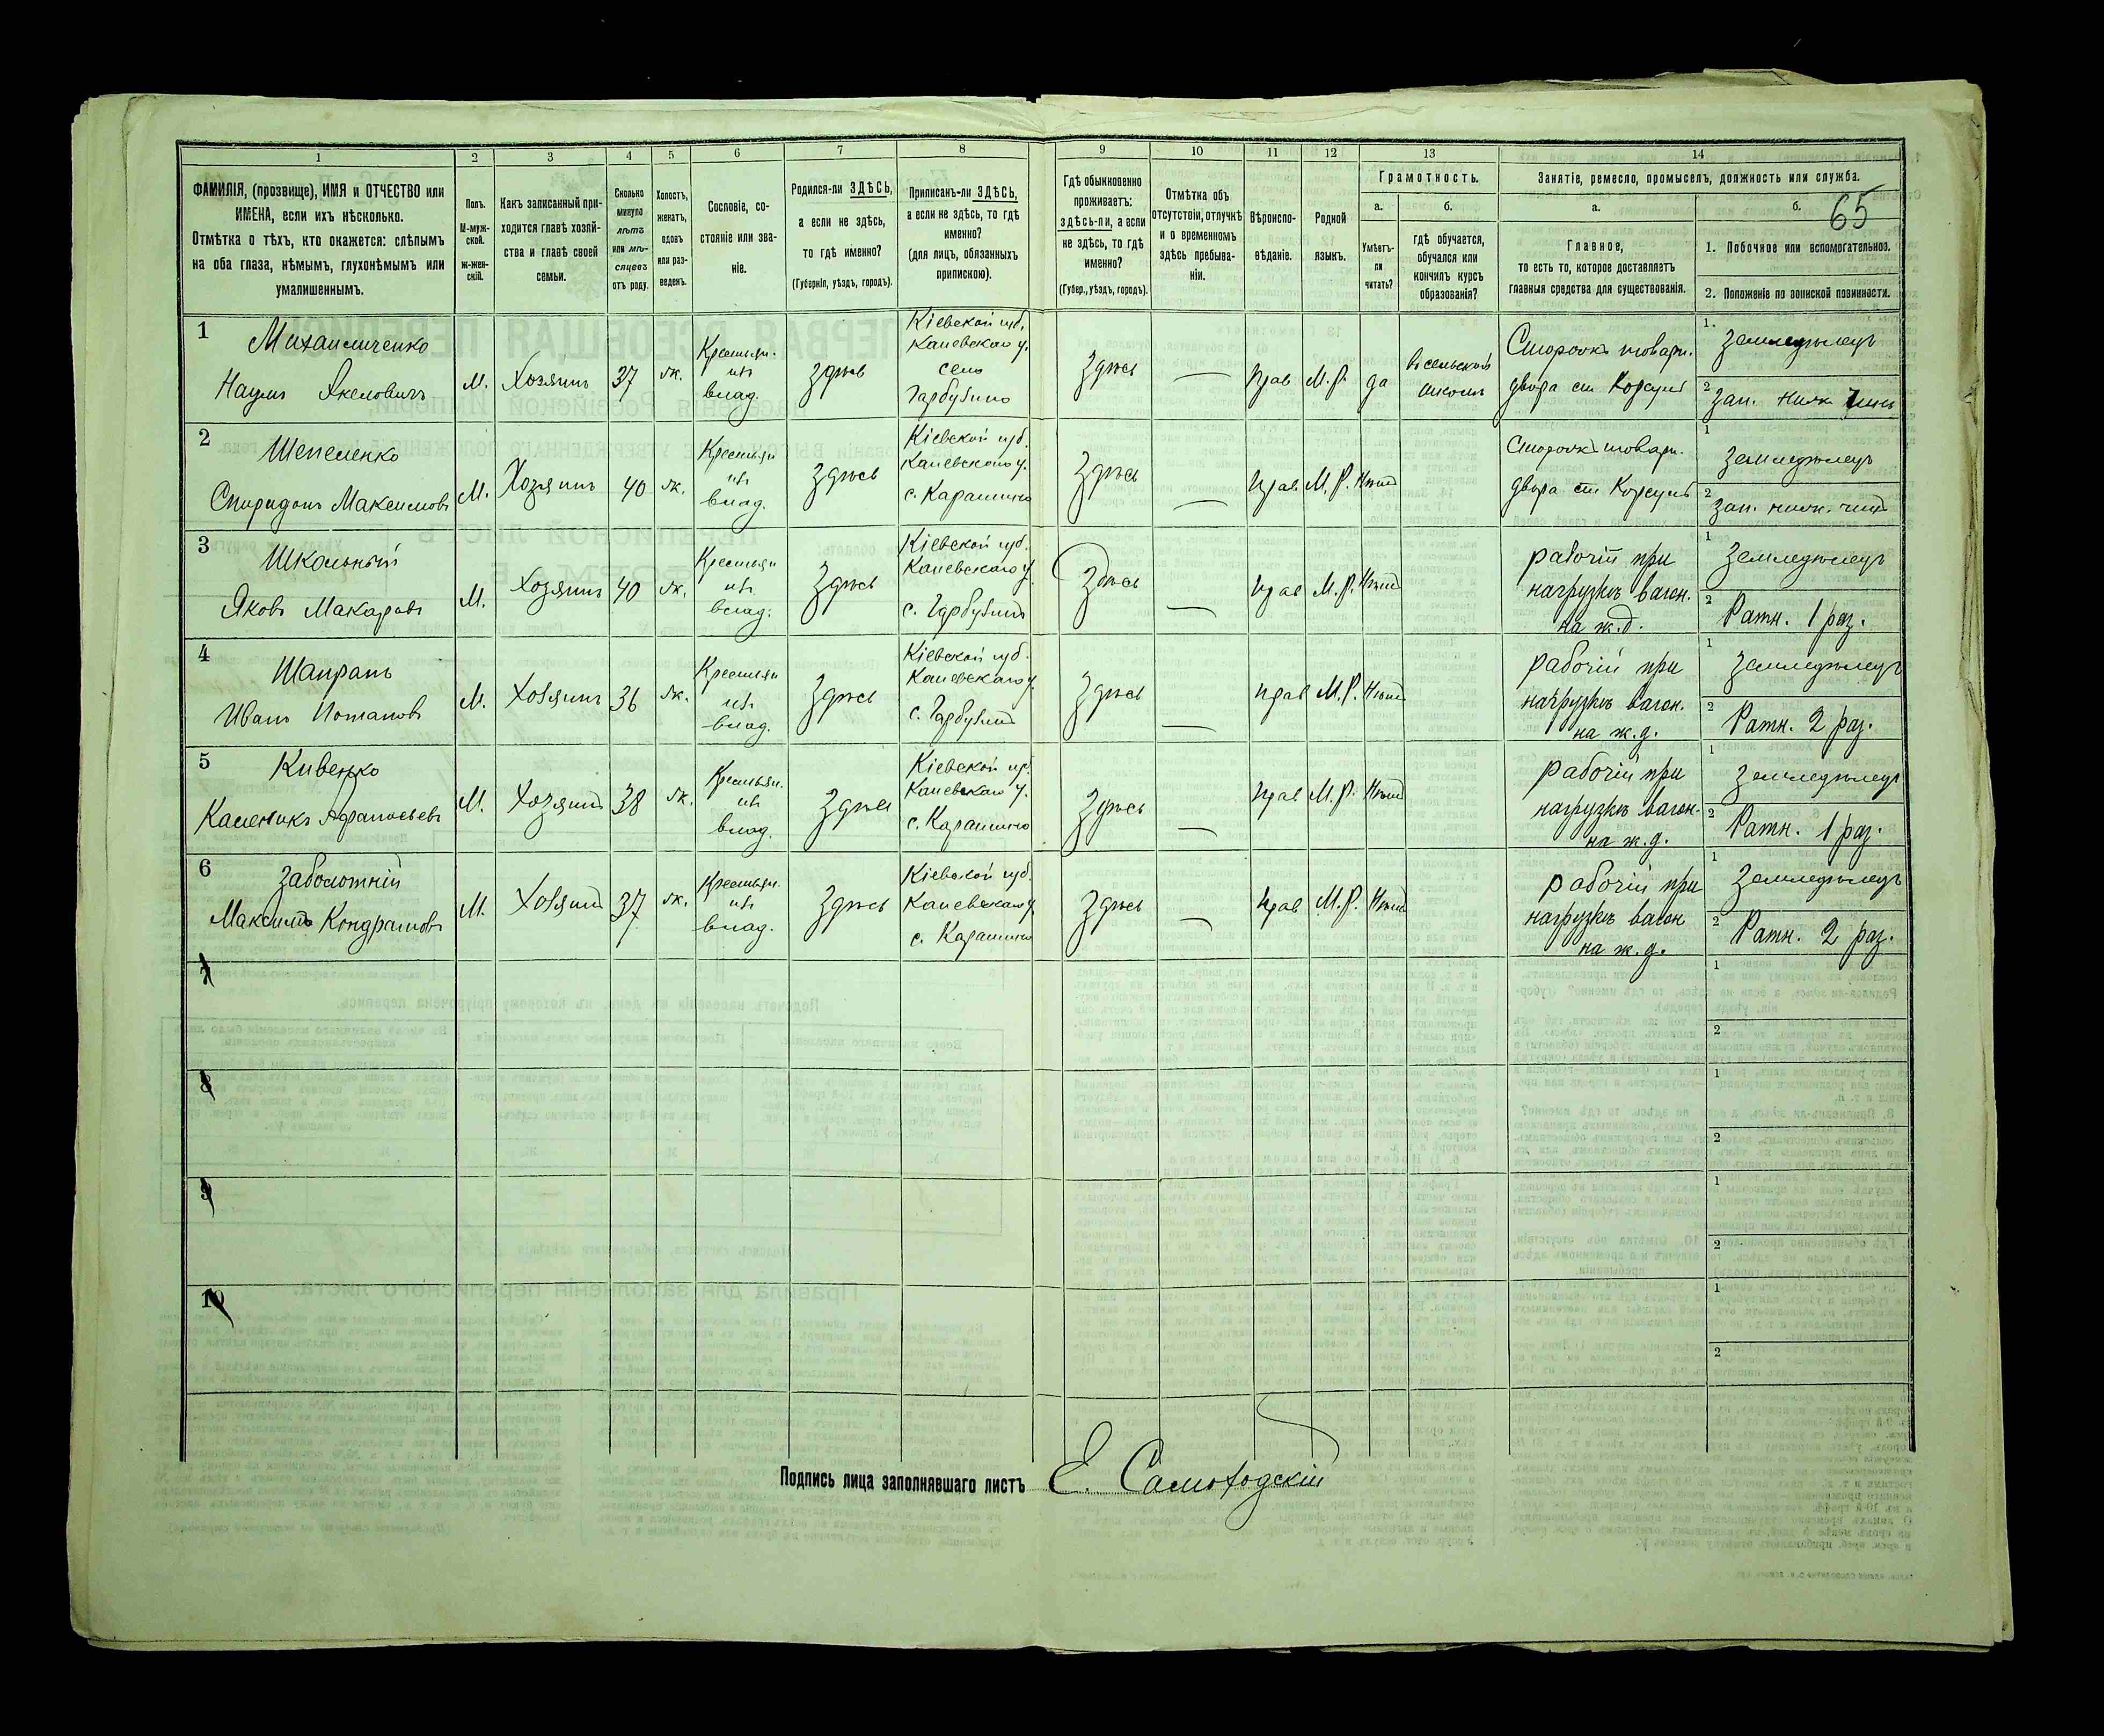 65
1 2 3 4 5 6 7 8 9 10 11 12 13 14
ФАМИЛІЯ, (прозвище), ИМЯ и ОТЧЕСТВО или
ИМЕНА, если ихъ нѣсколько.
Отмѣтка о тѣхъ, кто окажется: слѣпымъ
на оба глаза, нѣмымъ, глухонѣмымъ или
умалишеннымъ.
Полъ.
М-муж-
ской.
ж-жен-
скій.
Какъ записанный при-
ходится главѣ хозяй-
ства и главѣ своей
семьи.
Сколько
минуло
лѣтъ
или мѣ-
сяцевъ
отъ роду.
Холостъ,
женатъ,
вдовъ
или раз-
веденъ.
Сословіе, со-
стояніе или зва-
ніе.
Родился-ли ЗДѢСЬ,
а если не здѣсь,
то гдѣ именно?
(Губернія, уѣздъ, городъ).
Приписанъ-ли ЗДѢСЬ,
а если не здѣсь, то гдѣ
именно?
(для лицъ, обязанныхъ
припискою).
Гдѣ обыкновенно
проживаетъ:
здѣсь-ли, а если
не здѣсь, то гдѣ
именно?
(Губер., уѣздъ, городъ).
Отмѣтка объ
отсутствіи, отлучкѣ
и о временномъ
здѣсь пребыва-
ніи.
Вѣроиспо-
вѣданіе.
Родной
языкъ.
Грамотность.
а.
Умѣетъ-
ли
читать?
б.
гдѣ обучается,
обучался или
кончилъ курсъ
образованія?
Занятіе, ремесло, промыселъ, должность или служба.
а.
Главное,
то есть то, которое доставляетъ
главныя средства для существованія.
б.
1. Побочное или вспомогательное.
2. Положеніе по воинской повинности.
1 Михаиличенко
Наумъ Якеловичъ
М. Хозяинъ 37 ж.
Крестьян.
изъ
влад.
Здѣсь
Кіевской губ.
Каневскаго у.
село
Гарбузино
Здѣсь — Прав М.Р. да
въ сельской
школѣ
Сторожъ товарн.
двора ст. Корсунь
1. Земледѣлецъ
2 Зап. нижн. чинъ
2 Шепеленко
Спиридонъ Максимовъ
М. Хозяинъ 40 ж.
Крестьян
изъ
влад.
Здѣсь
Кіевской губ.
Каневского у.
с. Карашино
Здѣсь — Прав М.Р. Нѣтъ
Сторожъ товарн.
двора ст. Корсунь
1 Земледѣлецъ
2 Зап. нижн. чинъ
3 Школьный
Яковъ Макаровъ
М. Хозяинъ 40 ж.
Крестьян
изъ
влад.
Здѣсь
Кіевской губ.
Каневскаго у.
с. Гарбузинъ
Здѣсь — Прав М.Р. Нѣтъ
рабочій при
нагрузкѣ вагон.
на ж.д.
1 Земледѣлецъ
2 Ратн. 1 раз.
4 Шапранъ
Иванъ Потаповъ
М. Хозяинъ 36 ж.
Крестьян
изъ
влад.
Здѣсь
Кіевской губ.
Каневскаго у.
с. Гарбузинъ
Здѣсь — Прав М.Р. Нѣтъ
рабочій при
нагрузкѣ вагон.
на ж.д.
1 Земледѣлецъ
2 Ратн. 2 раз.
5 Кивенко
Каленикъ Афанасьевъ
М. Хозяинъ 38 ж.
Крестьян.
изъ
влад.
Здѣсь
Кіевской гу.
Каневскаго у.
с. Карашино
Здѣсь — Прав М.Р. Нѣтъ
рабочій при
нагрузкѣ вагон.
на ж.д.
1 Земледѣлецъ
2 Ратн. 1 раз.
6 Заболотній
Максимъ Кондратовъ
М. Хозяинъ 37 ж.
Крестьян.
изъ
влад.
Здѣсь
Кіевской губ.
Каневскаго у.
с. Карашино
Здѣсь — Прав М.Р. Нѣтъ
рабочій при
нагрузкѣ вагон
на ж.д.
1 Земледѣлецъ
2 Ратн. 2 раз.
7
1
2
8
1
2
9
1
2
10
1
2
Подпись лица заполнявшаго листъ Е. Самоходскій